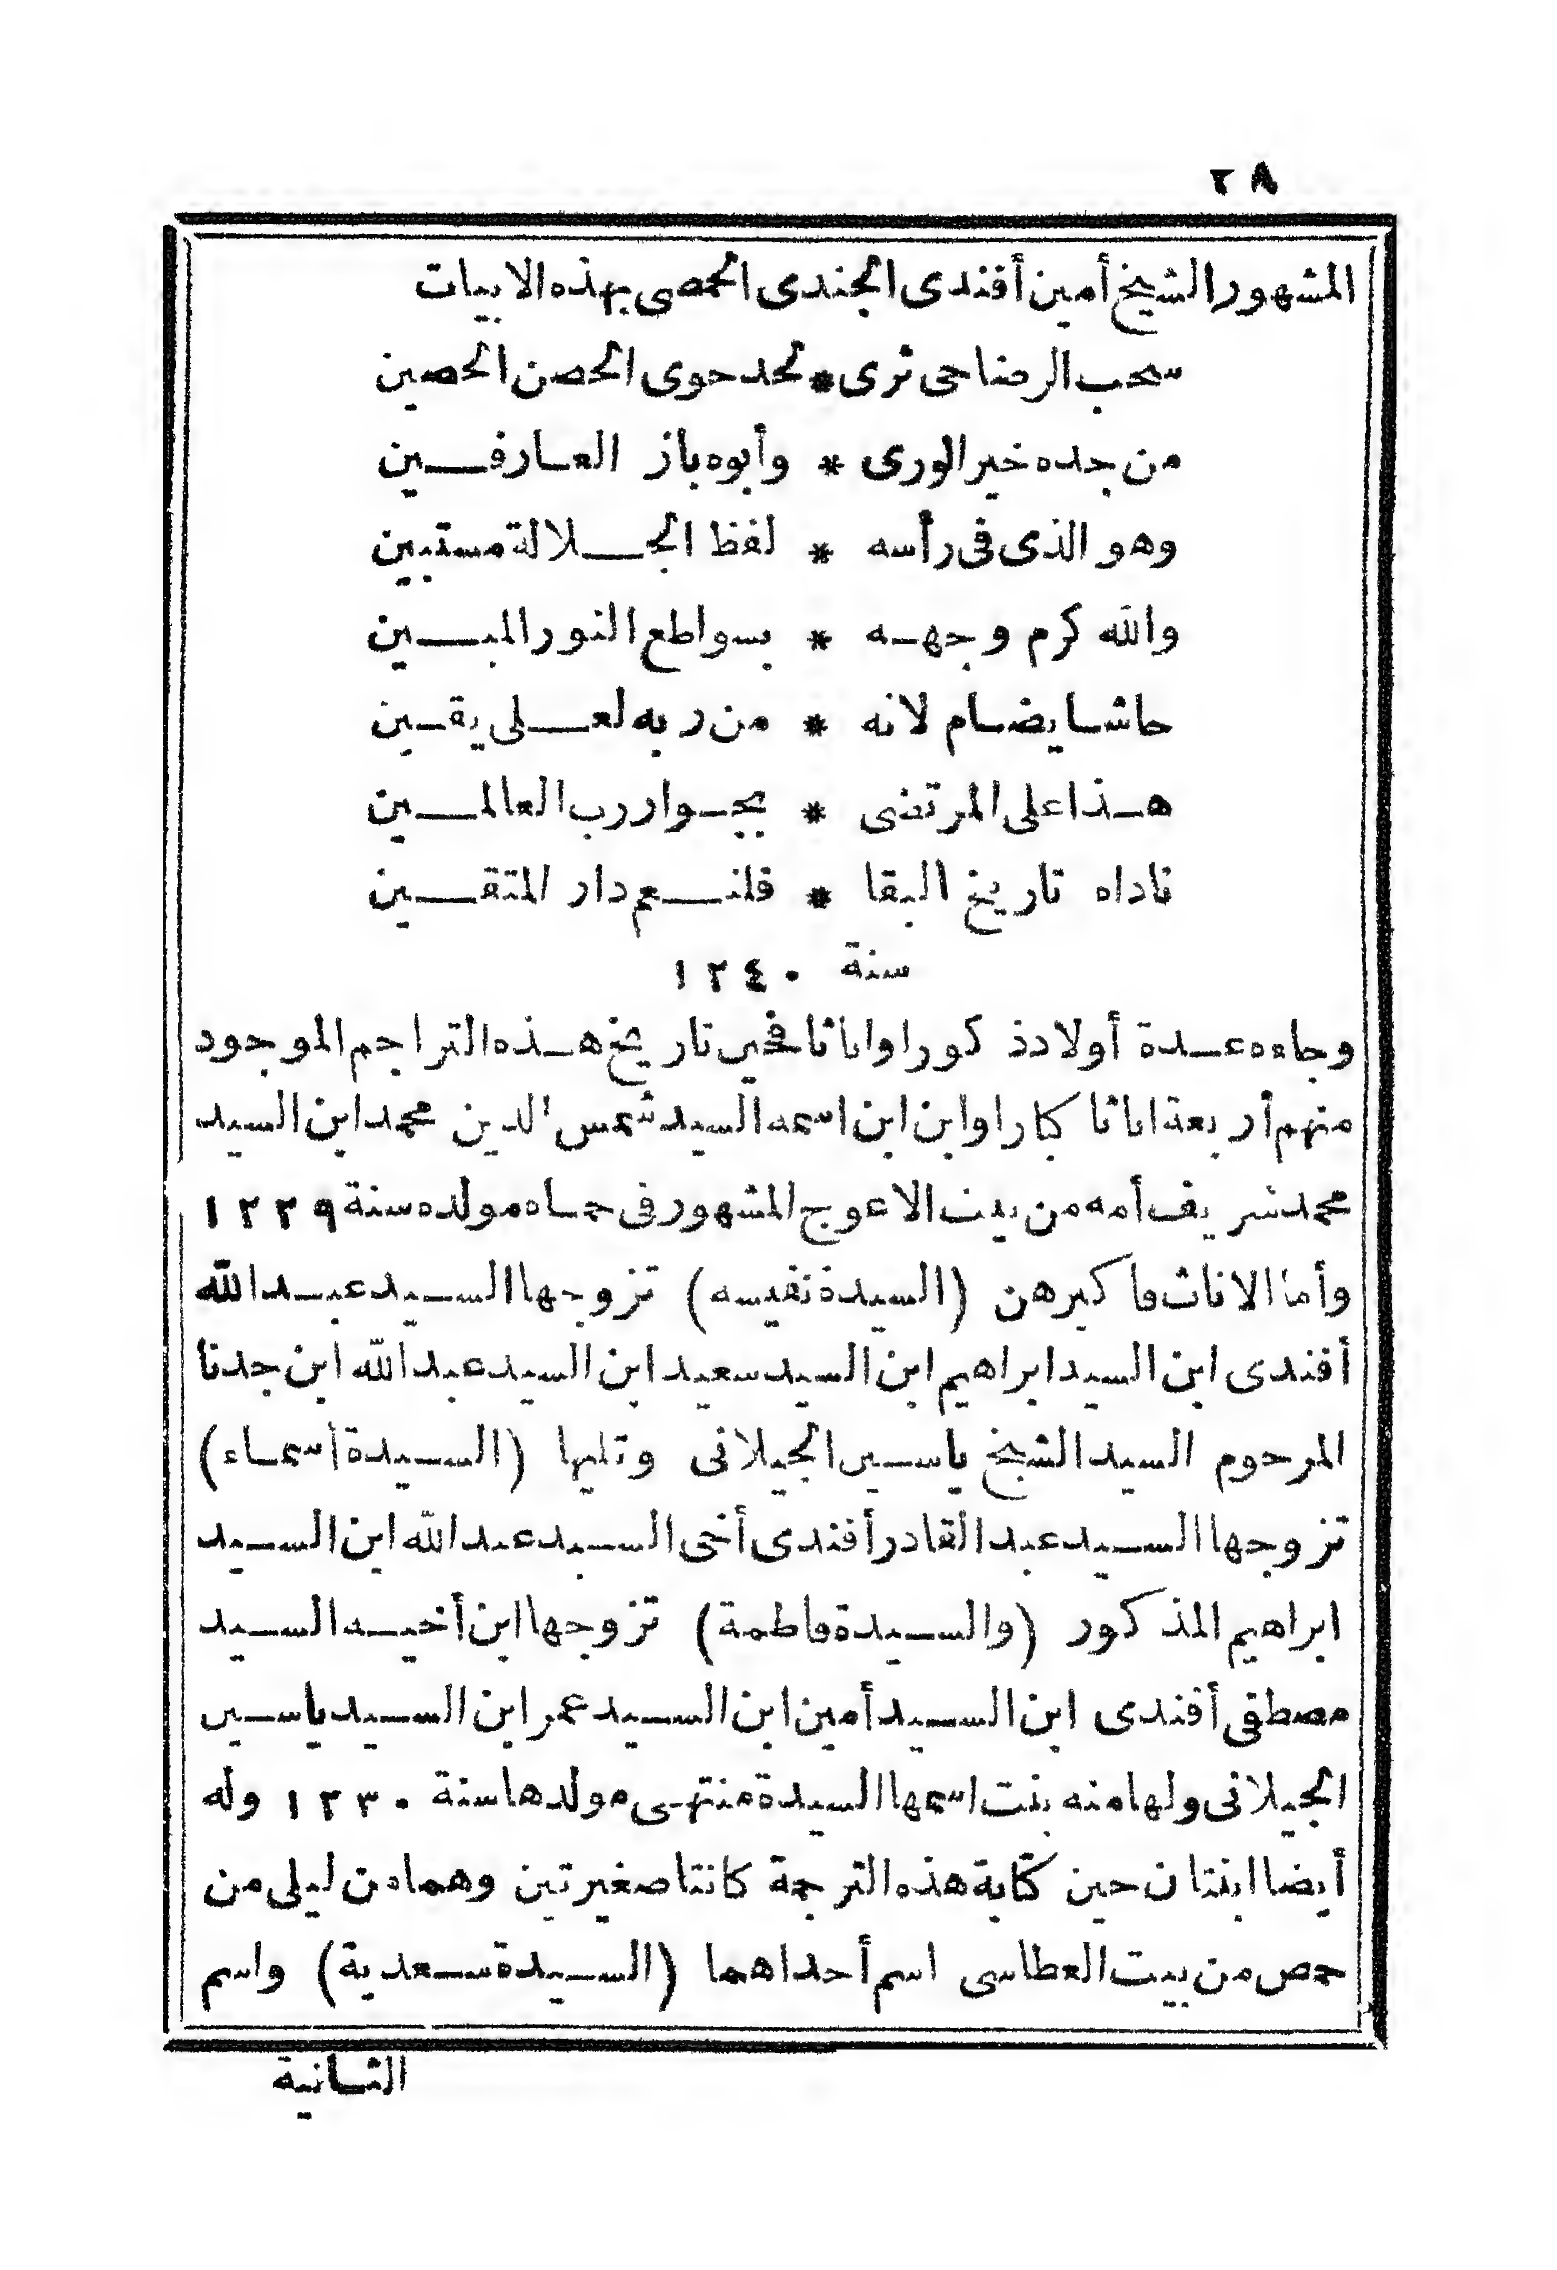 ٢٨
المشهور الشيخ أمين أفندى الجندى الحمصى بهذه الابيات
سحب الرضا حى ثرى * لحد حوى الحصن الحصين
من جده خير الورى * وأبوه باز العارفين
وهو الذى فى رأسه * لفظ الجلالة مستبين
والله كرم وجهه * بسواطع النور المبين
حاشا يضام لانه * من ربه لعلى يقين
هذا على المرتضى * بجوار رب العالمين
ناداه تاريخ البقا * فلنعم دار المتقين
سنة ١٢٤٠
وجاءه عدة أولاد ذكورا واناثا فحين تاريخ هذه التراجم الموجود
منهم أربعة اناثا كبارا وابن ابن اسمه السيد شمس الدين محمد ابن السيد
محمد شريف أمه من بيت الاعوج المشهور فى حماه مولده سنة ١٢٣٩
وأما الاناث فاكبرهن (السيدة نفيسه) تزوجها السيد عبد الله
أفندى ابن السيد ابراهيم ابن السيد سعيد ابن السيد عبد الله ابن جدنا
المرحوم السيد الشيخ ياسين الجيلانى وتليها (السيدة أسماء)
تزوجها السيد عبد القادر أفندى أخى السيد عبد الله ابن السيد
ابراهيم المذكور (والسيدة فاطمة) تزوجها ابن أخيه السيد
مصطفى أفندى ابن السيد أمين ابن السيد عمر ابن السيد ياسين
الجيلانى ولها منه بنت اسمها السيدة منتهى مولدها سنة ١٢٣٠ وله
أيضا ابنتان حين كتابة هذه الترجمة كانتا صغيرتين وهما من ليلى من
حمص من بيت العطاسى اسم أحداهما (السيدة سعدية) واسم
الثانية